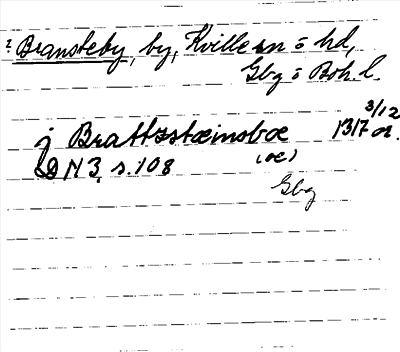 ? Bransteby, by, Kville sn o hd,
Gbg o Boh. l.
3/12
j Brattzstæinsbœ 1317 or.
DN 3, s. 108 (œ)
Gbg